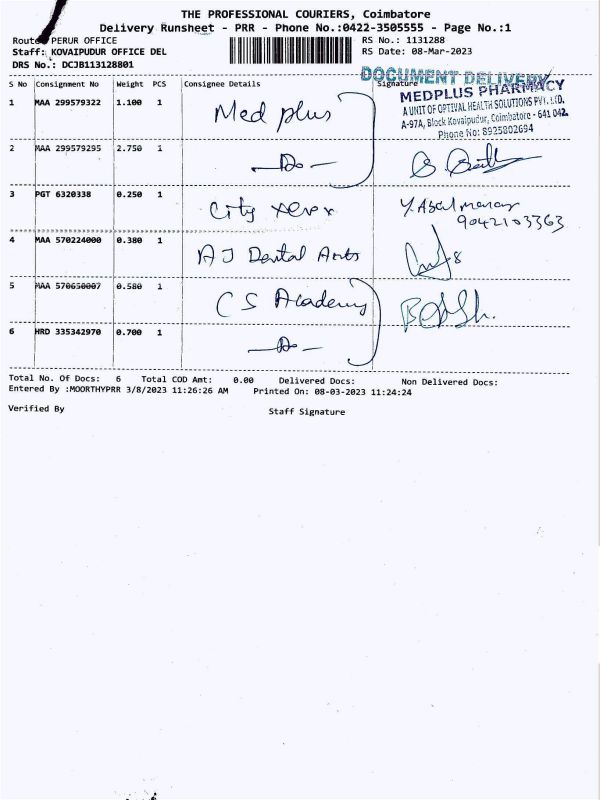 THE PROFESSIONAL COURIERS, Coimbatore
Delivery Runsheet - PRR - Phone No.:0422-3505555 - Page No.:1
Route: PERUR OFFICE RS No.: 1131288
Staff: KOVAIPUDUR OFFICE DEL RS Date: 08-Mar-2023
DRS No.: DCJB113128801
DOCUMENT DELIVERY
S No Consignment No Weight PCS Consignee Details Signature
MEDPLUS PHARMACY
A UNIT OF OPTIVAL HEALTH SOLUTIONS PVT. LTD.
A-97A, Block Kovaipudur, Coimbatore - 641 042.
Phone No: 8925802694
1 MAA 299579322 1.100 1 Med plus
2 MAA 299579295 2.750 1 —Do—
3 PGT 6320338 0.250 1 City xerox
9042103363
4 MAA 570224000 0.380 1 AJ Dental Arts
5 MAA 570650007 0.580 1 CS Academy
6 HRD 335342970 0.700 1 —Do—
Total No. Of Docs: 6 Total COD Amt: 0.00 Delivered Docs: Non Delivered Docs:
Entered By :MOORTHYPRR 3/8/2023 11:26:26 AM Printed On: 08-03-2023 11:24:24
Verified By Staff Signature